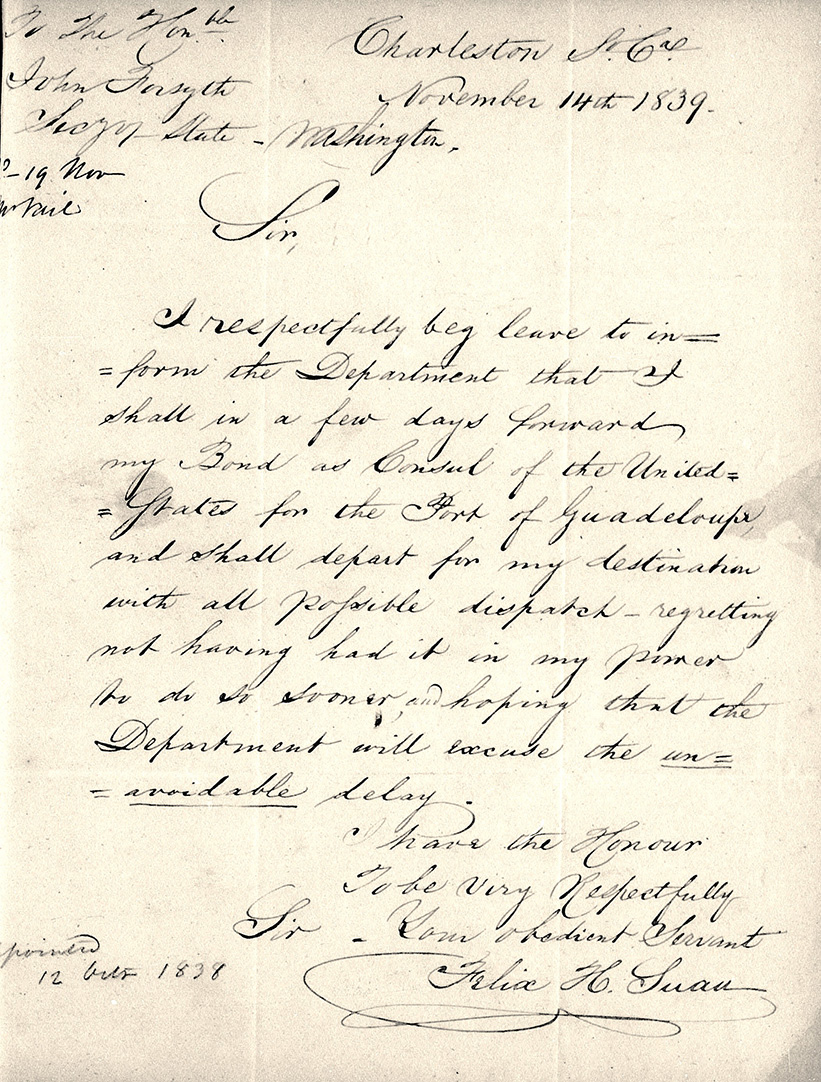 To The Honble
John Forsyth
Secry of State - Washington,
19 Nov
Mr Vail
Charleston So. Cae.
November 14th 1839.
Sir,
I respectfully beg leave to in=
=form the Department that I
shall in a few days forward
my Bond as Consul of the United=
=States for the Port of Guadeloupe,
and shall depart for my destination
with all possible dispatch - regretting
not having had it in my power
to do so sooner, and hoping that the
Department will excuse the un=
=avoidable delay.
I have the Honour
To be Very Respectfully
Sir - Your obedient Servant
Felix H. Suau
pointed
12 Octr 1838